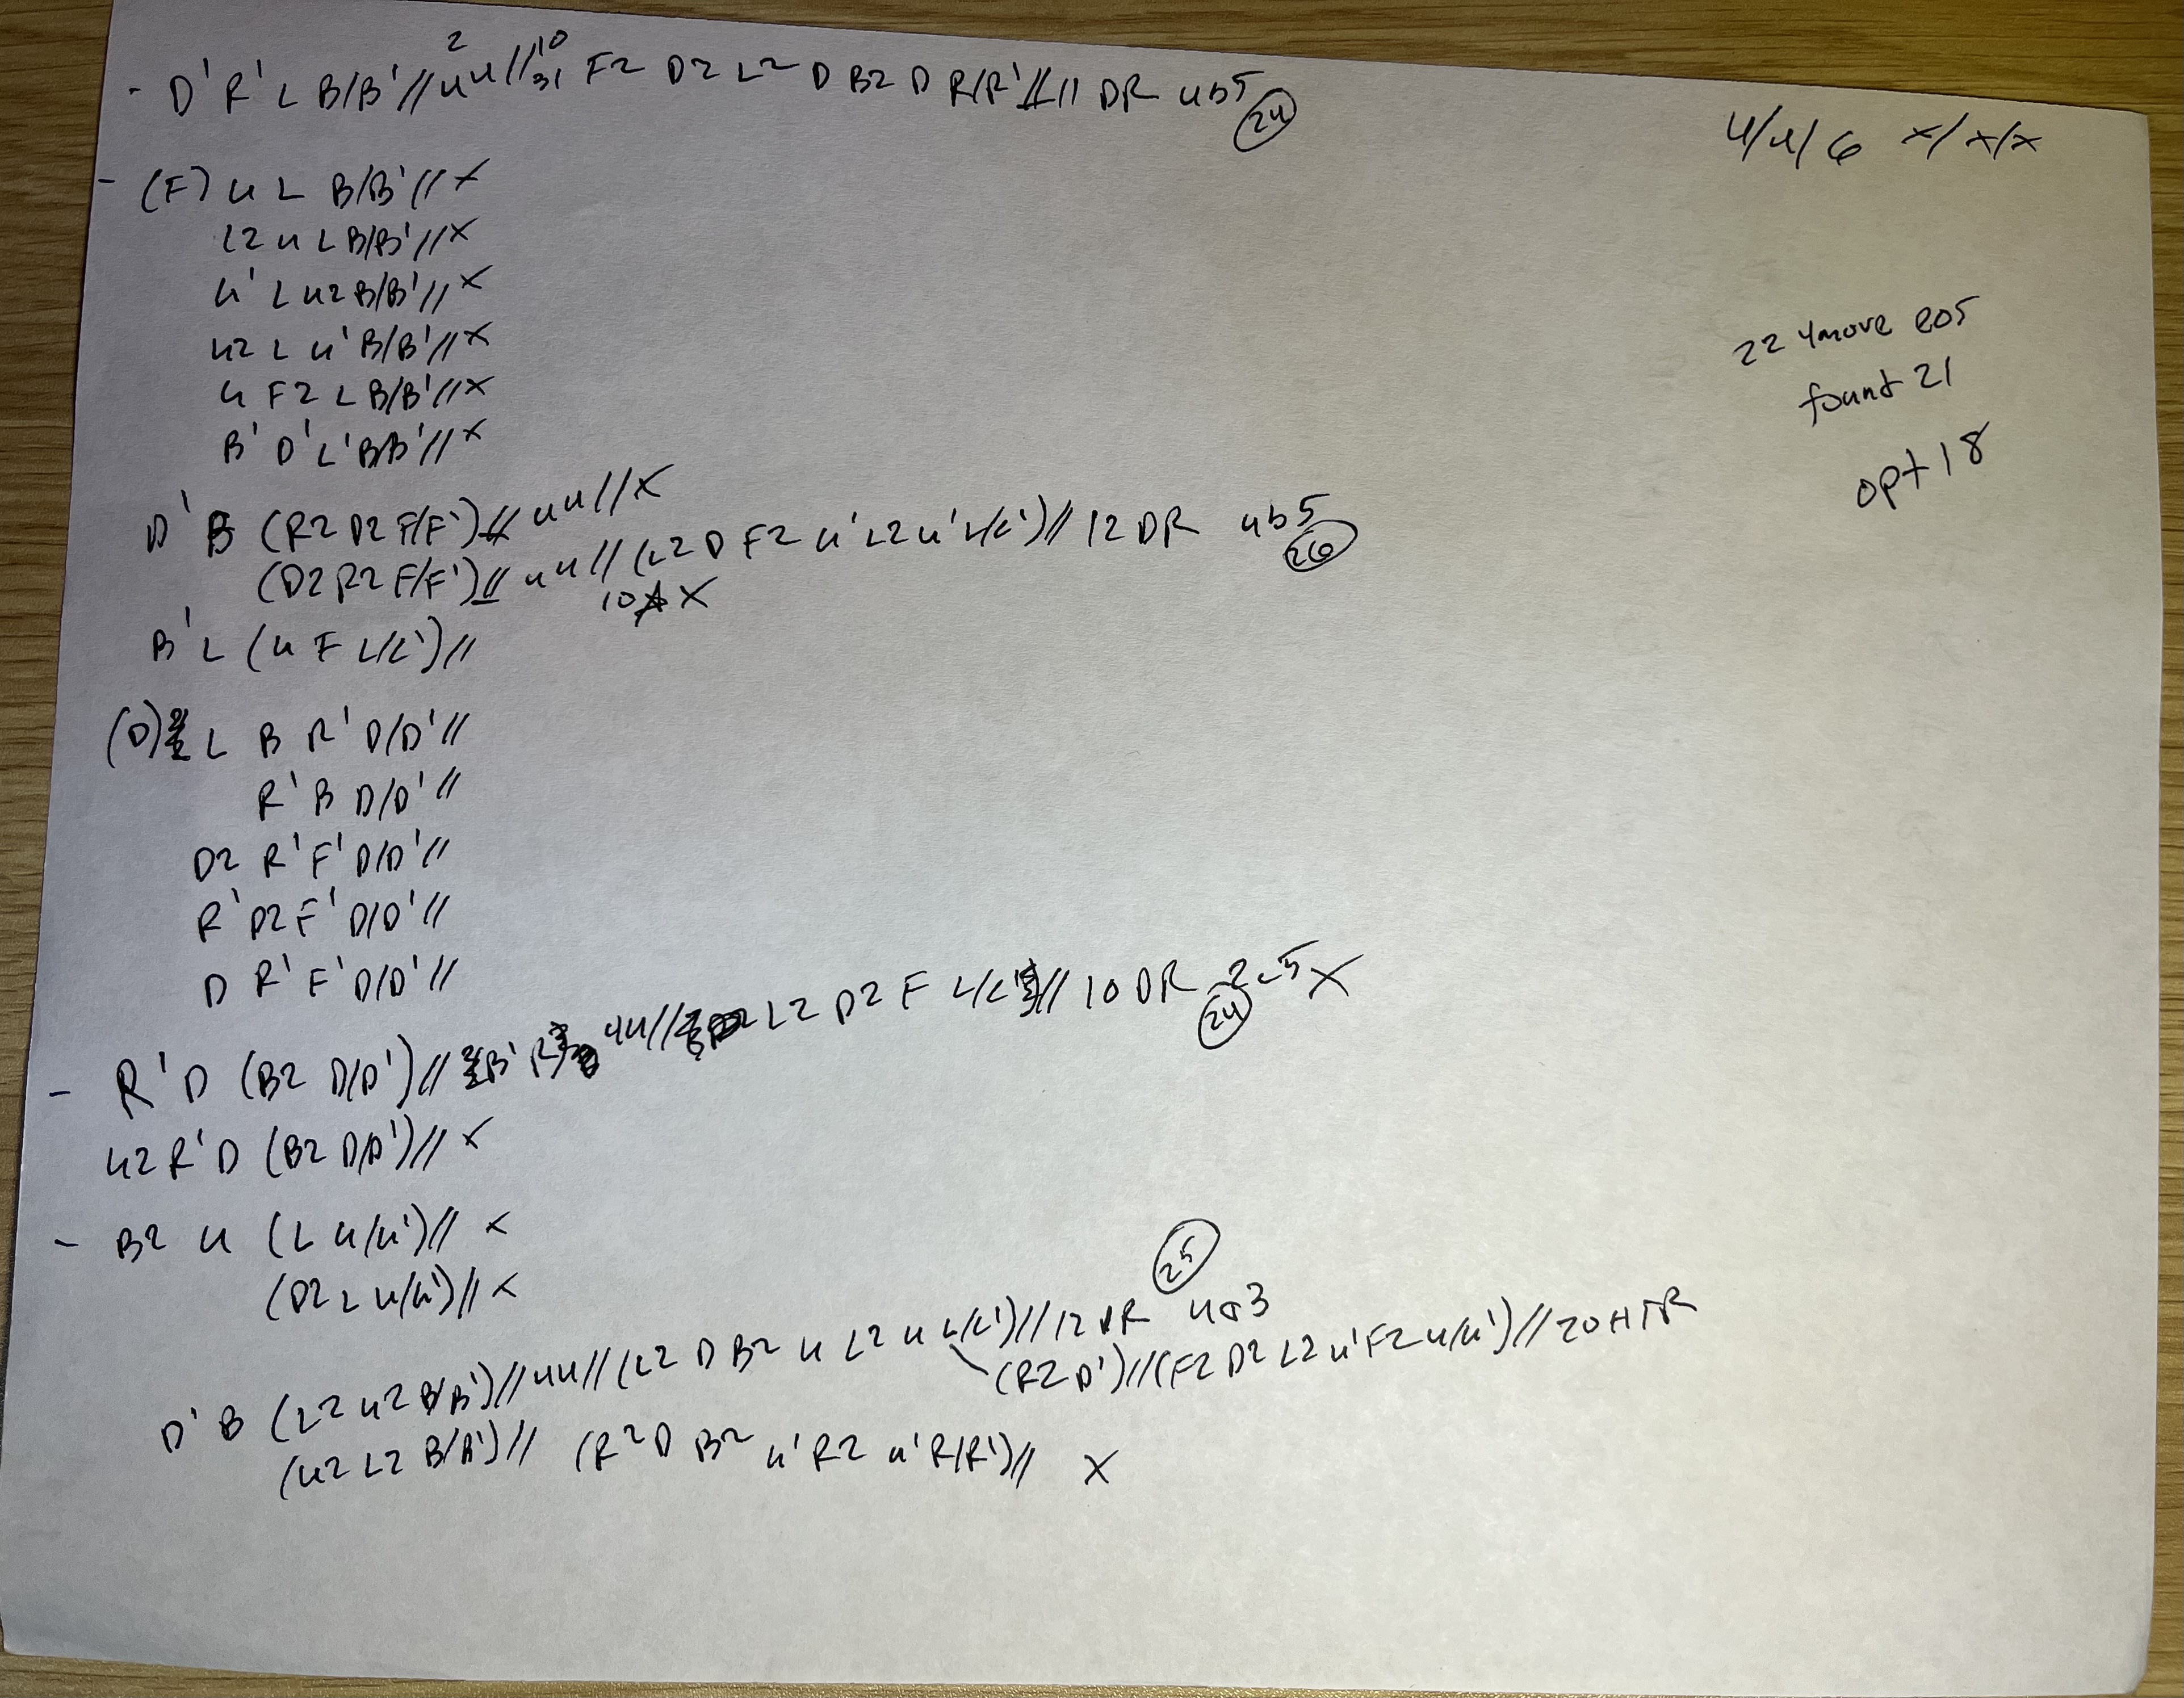 - D' R' L B/B' // 2 4u // 10 31 F2 D2 L2 D B2 D R/R' // 11 DR 4b5 24
4/4/6 x/x/x
- (F) u L B/B' // x
L2 u L B/B' // x
u' L u2 B/B' // x
u2 L u' B/B' // x
u F2 L B/B' // x
B' D' L' B/B' // x
22 4move eos
found 21
opt 18
D' B (R2 D2 F/F') // 4u // x
(D2 R2 F/F') // 4u // (L2 D F2 u' L2 u' L/L') // 12 DR 4b5 26
10 x
B' L (u F L/L') //
(D) L B R' D/D' //
R' B D/D' //
D2 R' F' D/D' //
R' D2 F' D/D' //
D R' F' D/D' //
- R' D (B2 D/D') // 4u // L2 D2 F L/L' // 10 DR 2c5 x 24
u2 R' D (B2 D/D') // x
- B2 u (L u/u') // x
(D2 L u/u') // x
D' B (L2 u2 B/B') // 4u // (L2 D B2 u L2 u L/L') // 12 DR 4a3 25
\ (R2 D') // (F2 D2 L2 u' F2 u/u') // 20 HTR
(u2 L2 B/B') // (R2 D B2 u' R2 u' R/R') // x